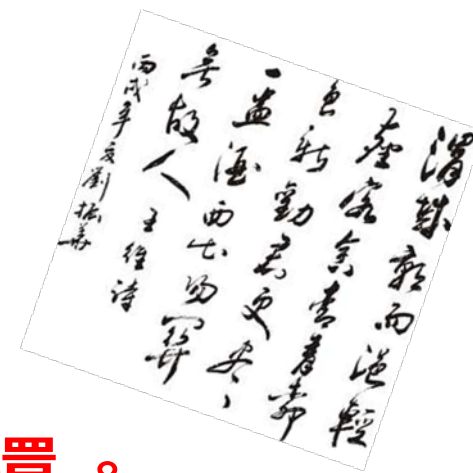 渭城朝雨浥輕
塵客舍青青柳
色新勸君更尽
一盃酒西出陽関
無故人 王維詩
丙戌年夏劉振華